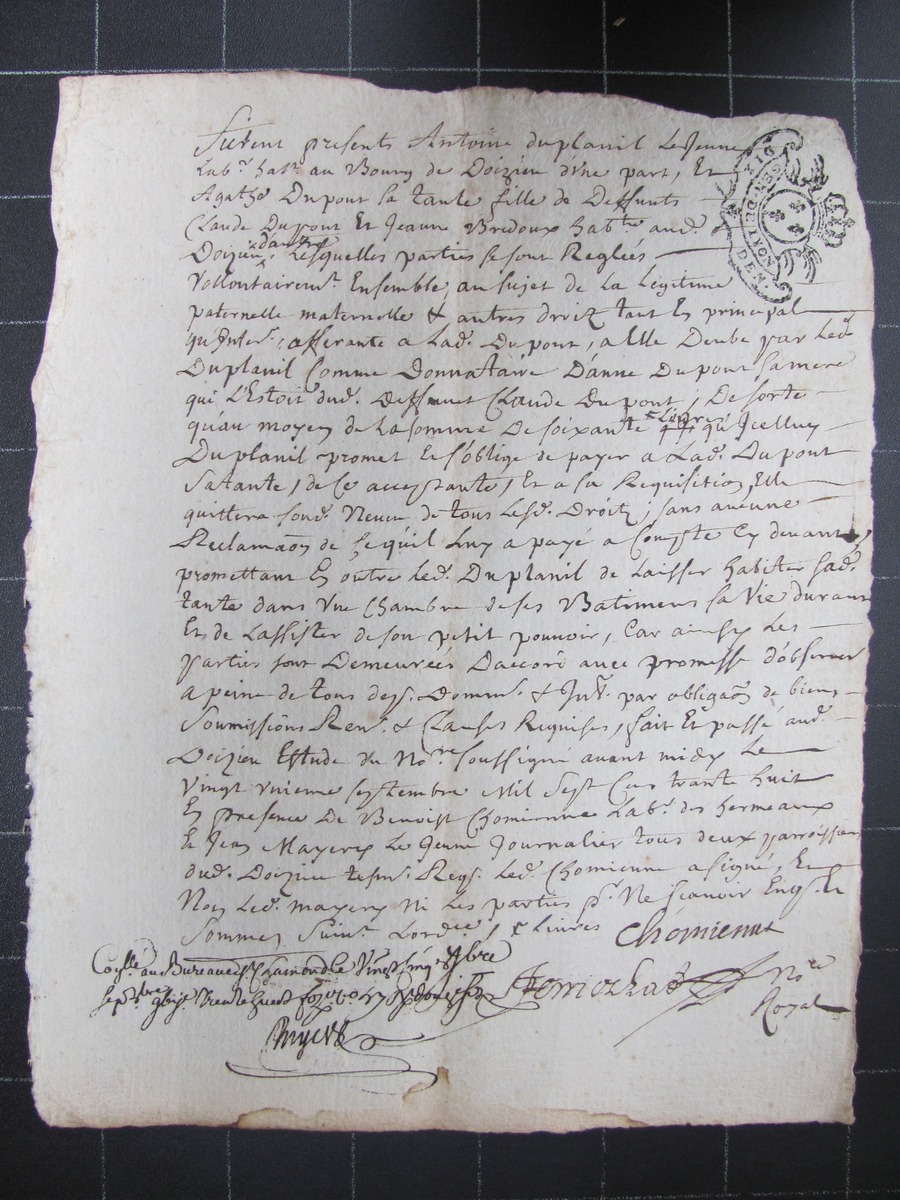 Furent presents Antoine duplanil Le Jeune
Lab.r hab.t au Bourg de Doizieu d'vne part, Et
Agathe Dupont sa tante fille de Deffunts
Claude Dupont Et Jeanne Bredoux hab.te aud.
Doizieu, d'autre Lesquelles parties se sont Reglées
Vollontairem.t Ensemble, au sujet de la Legitime
paternelle maternelle & autres droitz tant En principal
qu'Inter.t afferante a Lad. Dupont, a Elle Deube par Led.
Duplanil Comme Donnataire D'anne Dupont sa mere
qui L'Estoit dud. Deffunct Claude Dupont, De sorte
qu'au moyen de la somme De soixante Livres qu'Icelluy
Duplanil promet Et s'oblige de payer a Lad. Dupont
sa tante, de ce acceptante, Et a sa Requisition, Elle
quittera sond. Neveu de tous Lesd. Droitz, sans aucune
Reclama͠on de ce qu'il Luy a payé a Compte Cy devant,
promettant En outre Led. Duplanil de Laisser habiter sad.
tante dans Vne Chambre de ses Batimens sa Vie durant
Et de L'assister de son petit pouvoir, Car ainsy Les
parties sont Demeurées D'accord avec promesse d'observer
a peine de tous desp. Domm. & Int. par obliga͠on de biens
Soumissions Ren. & Clauses Requises, fait Et passé aud.
Doizieu Estude du No.re soussigné avant midy Le
Vingt vnieme septembre Mil Sept Cens trante huit
En presence De Benoist Chomienne Lab.r des hermeaux
Et Jean Mayery Le Jeune Journalier tous deux parroissiens
dud. Doizieu tesm. Reqs. Led. Chomienne a signé, Et
Non Led. mayery Ni Les parties p.r Ne scavoir Enq.s Et
Sommez Suiv.t L'ord.ce / Livres Chomienne
Au Bureau de S.t Chamond le Vingt cinq
No.re
Royal
DIX
DEN.